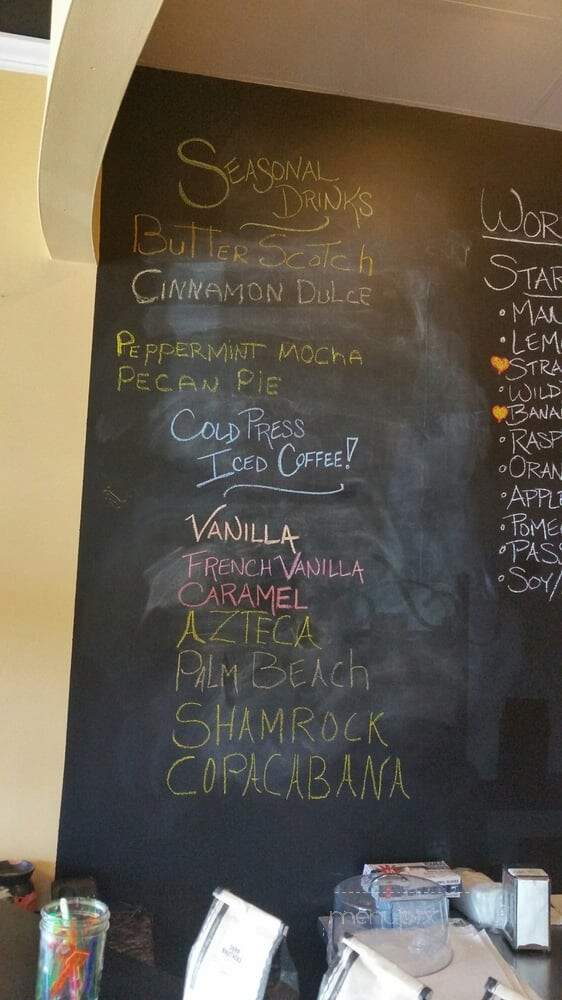 Seasonal
Drinks
Butter Scotch
Cinnamon Dulce
Peppermint Mocha
Pecan Pie
Cold Press
Iced Coffee!
Vanilla
French Vanilla
Caramel
Azteca
Palm Beach
Shamrock
Copacabana
Wor
Star
• Man
• Lem
Stra
• Wild
Bana
• Rasp
• Oran
• Apple
• Pome
• Pass
• Soy/
menupix